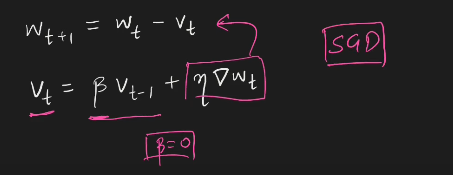 w_{t+1} = w_t - v_t
SGD
v_t = β v_{t-1} + η ∇w_t
β=0